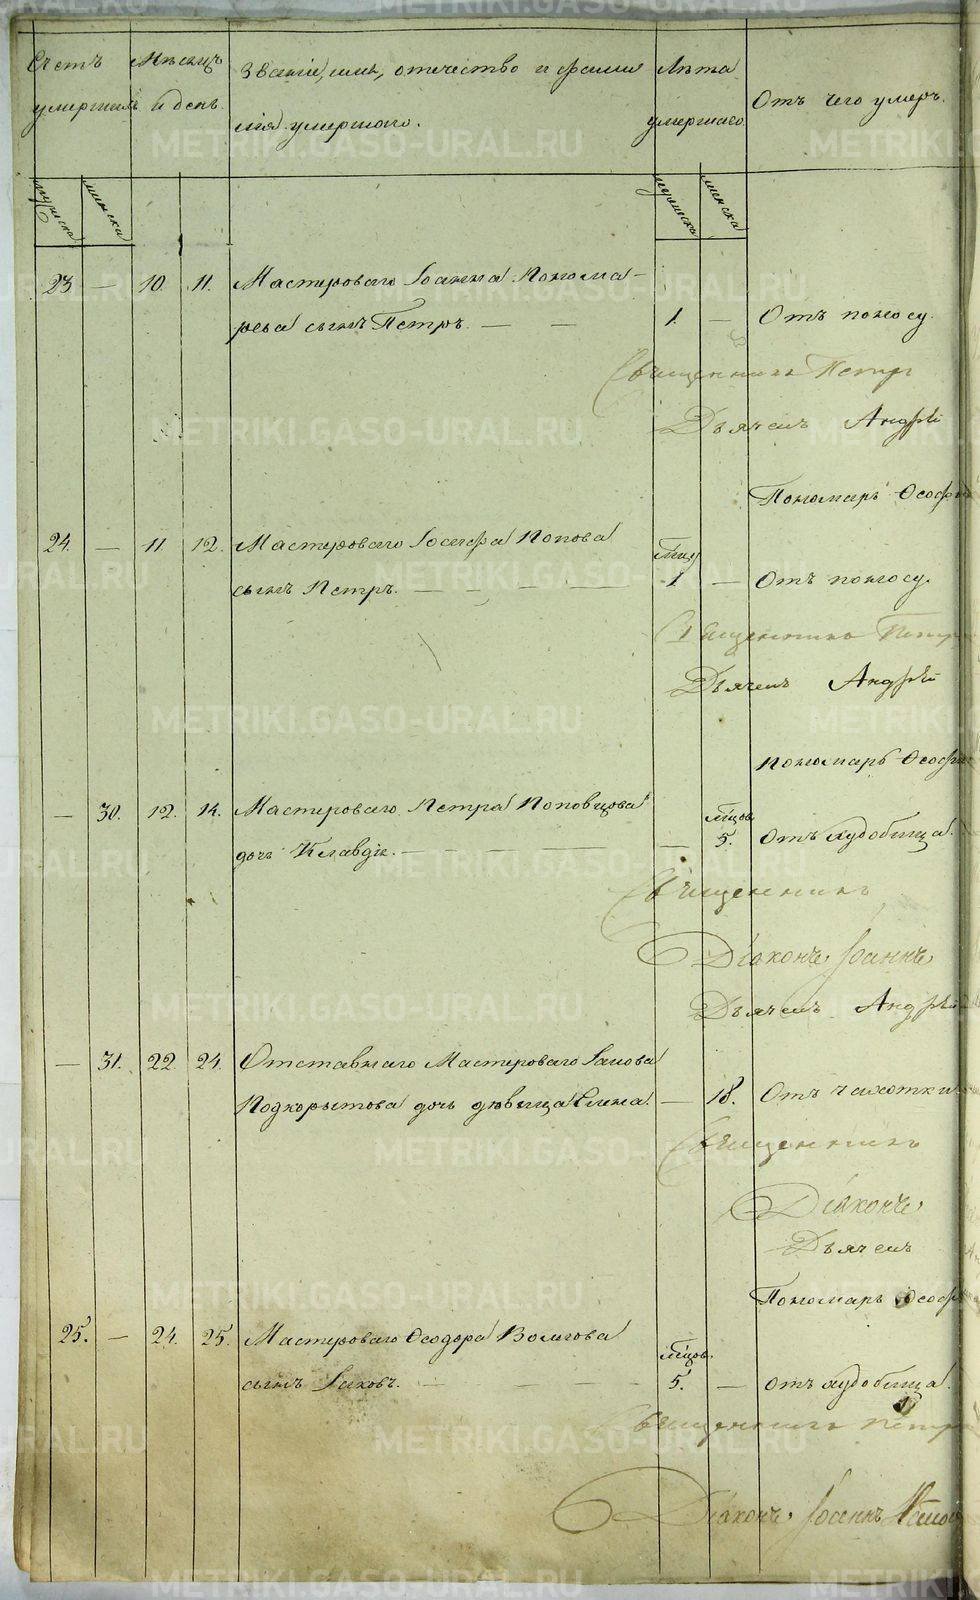 Счетъ умершихъ
Мѣсяцъ и день.
Званіе, имя, отечество и фами
лія умершаго.
Лѣта умершаго
Отъ чего умеръ.
мужеска
женска
мужеска
женска
23 — 10. 11. Мастероваго Іоанна Понома-
рева сынъ Петръ. — — 1. — Отъ поносу.
Священникъ Петр
Дьячекъ Андрѣй
Пономарь Ѳеоф
24. — 11. 12. Мастероваго Іосифа Попова мѣц
сынъ Петръ. — — — — 1 — Отъ поносу.
Священникъ Петр
Дьячекъ Андрѣй
Пономарь Ѳеоф
— 30. 12. 14. Мастероваго Петра Поповцова мѣцов
дочь Клавдія. — — — — — 5. Отъ худобища.
Священникъ
Діаконъ Іоаннъ
Дьячекъ Андрѣй
— 31. 22. 24. Отставнаго Мастероваго Іакова
Подкорытова дочь дѣвица Елена. — 18. Отъ чахотки
Священникъ
Діаконъ
Дьячекъ
Пономарь Ѳеоф
25. — 24. 25. Мастероваго Ѳеодора Волгова мѣцов.
сынъ Іаковъ. — — — — 5. — Отъ худобища.
Священникъ Петр
Діаконъ Іоаннъ
METRIKI.GASO-URAL.RU